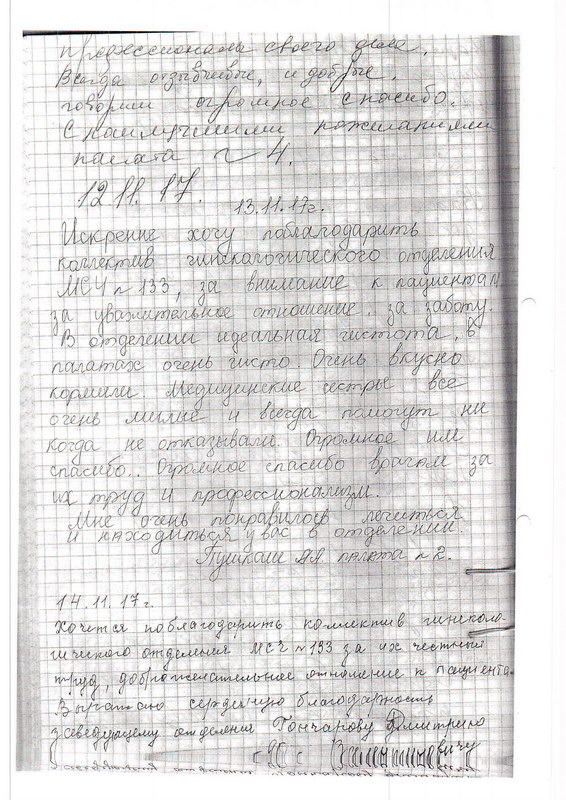 профессионалы своего дела.
Всегда отзывчивые, и добрые.
говорим огромное спасибо.
С наилучшими пожеланиями
палата № 4.
12.11.17.
13.11.17г.
Искренне хочу поблагодарить
коллектив гинекологического отделения
МСЧ № 133, за внимание к пациентам,
за уважительное отношение, за заботу.
В отделении идеальная чистота, в
палатах очень чисто. Очень вкусно
кормили. Медицинские сестры все
очень милые и всегда помогут ни
когда не отказывали. Огромное им
спасибо.. Огромное спасибо врачам за
их труд и профессионализм.
Мне очень понравилось лечиться
и находиться у вас в отделении.
палата № 2.
14.11.17г.
Хочется поблагодарить коллектив гинеколо-
гического отделения МСЧ № 133 за их честный
труд, доброжелательное отношение к пациента.
Выражаю сердечную благодарность
заведующему отделения Гончарову Дмитрию
Валентиновичу